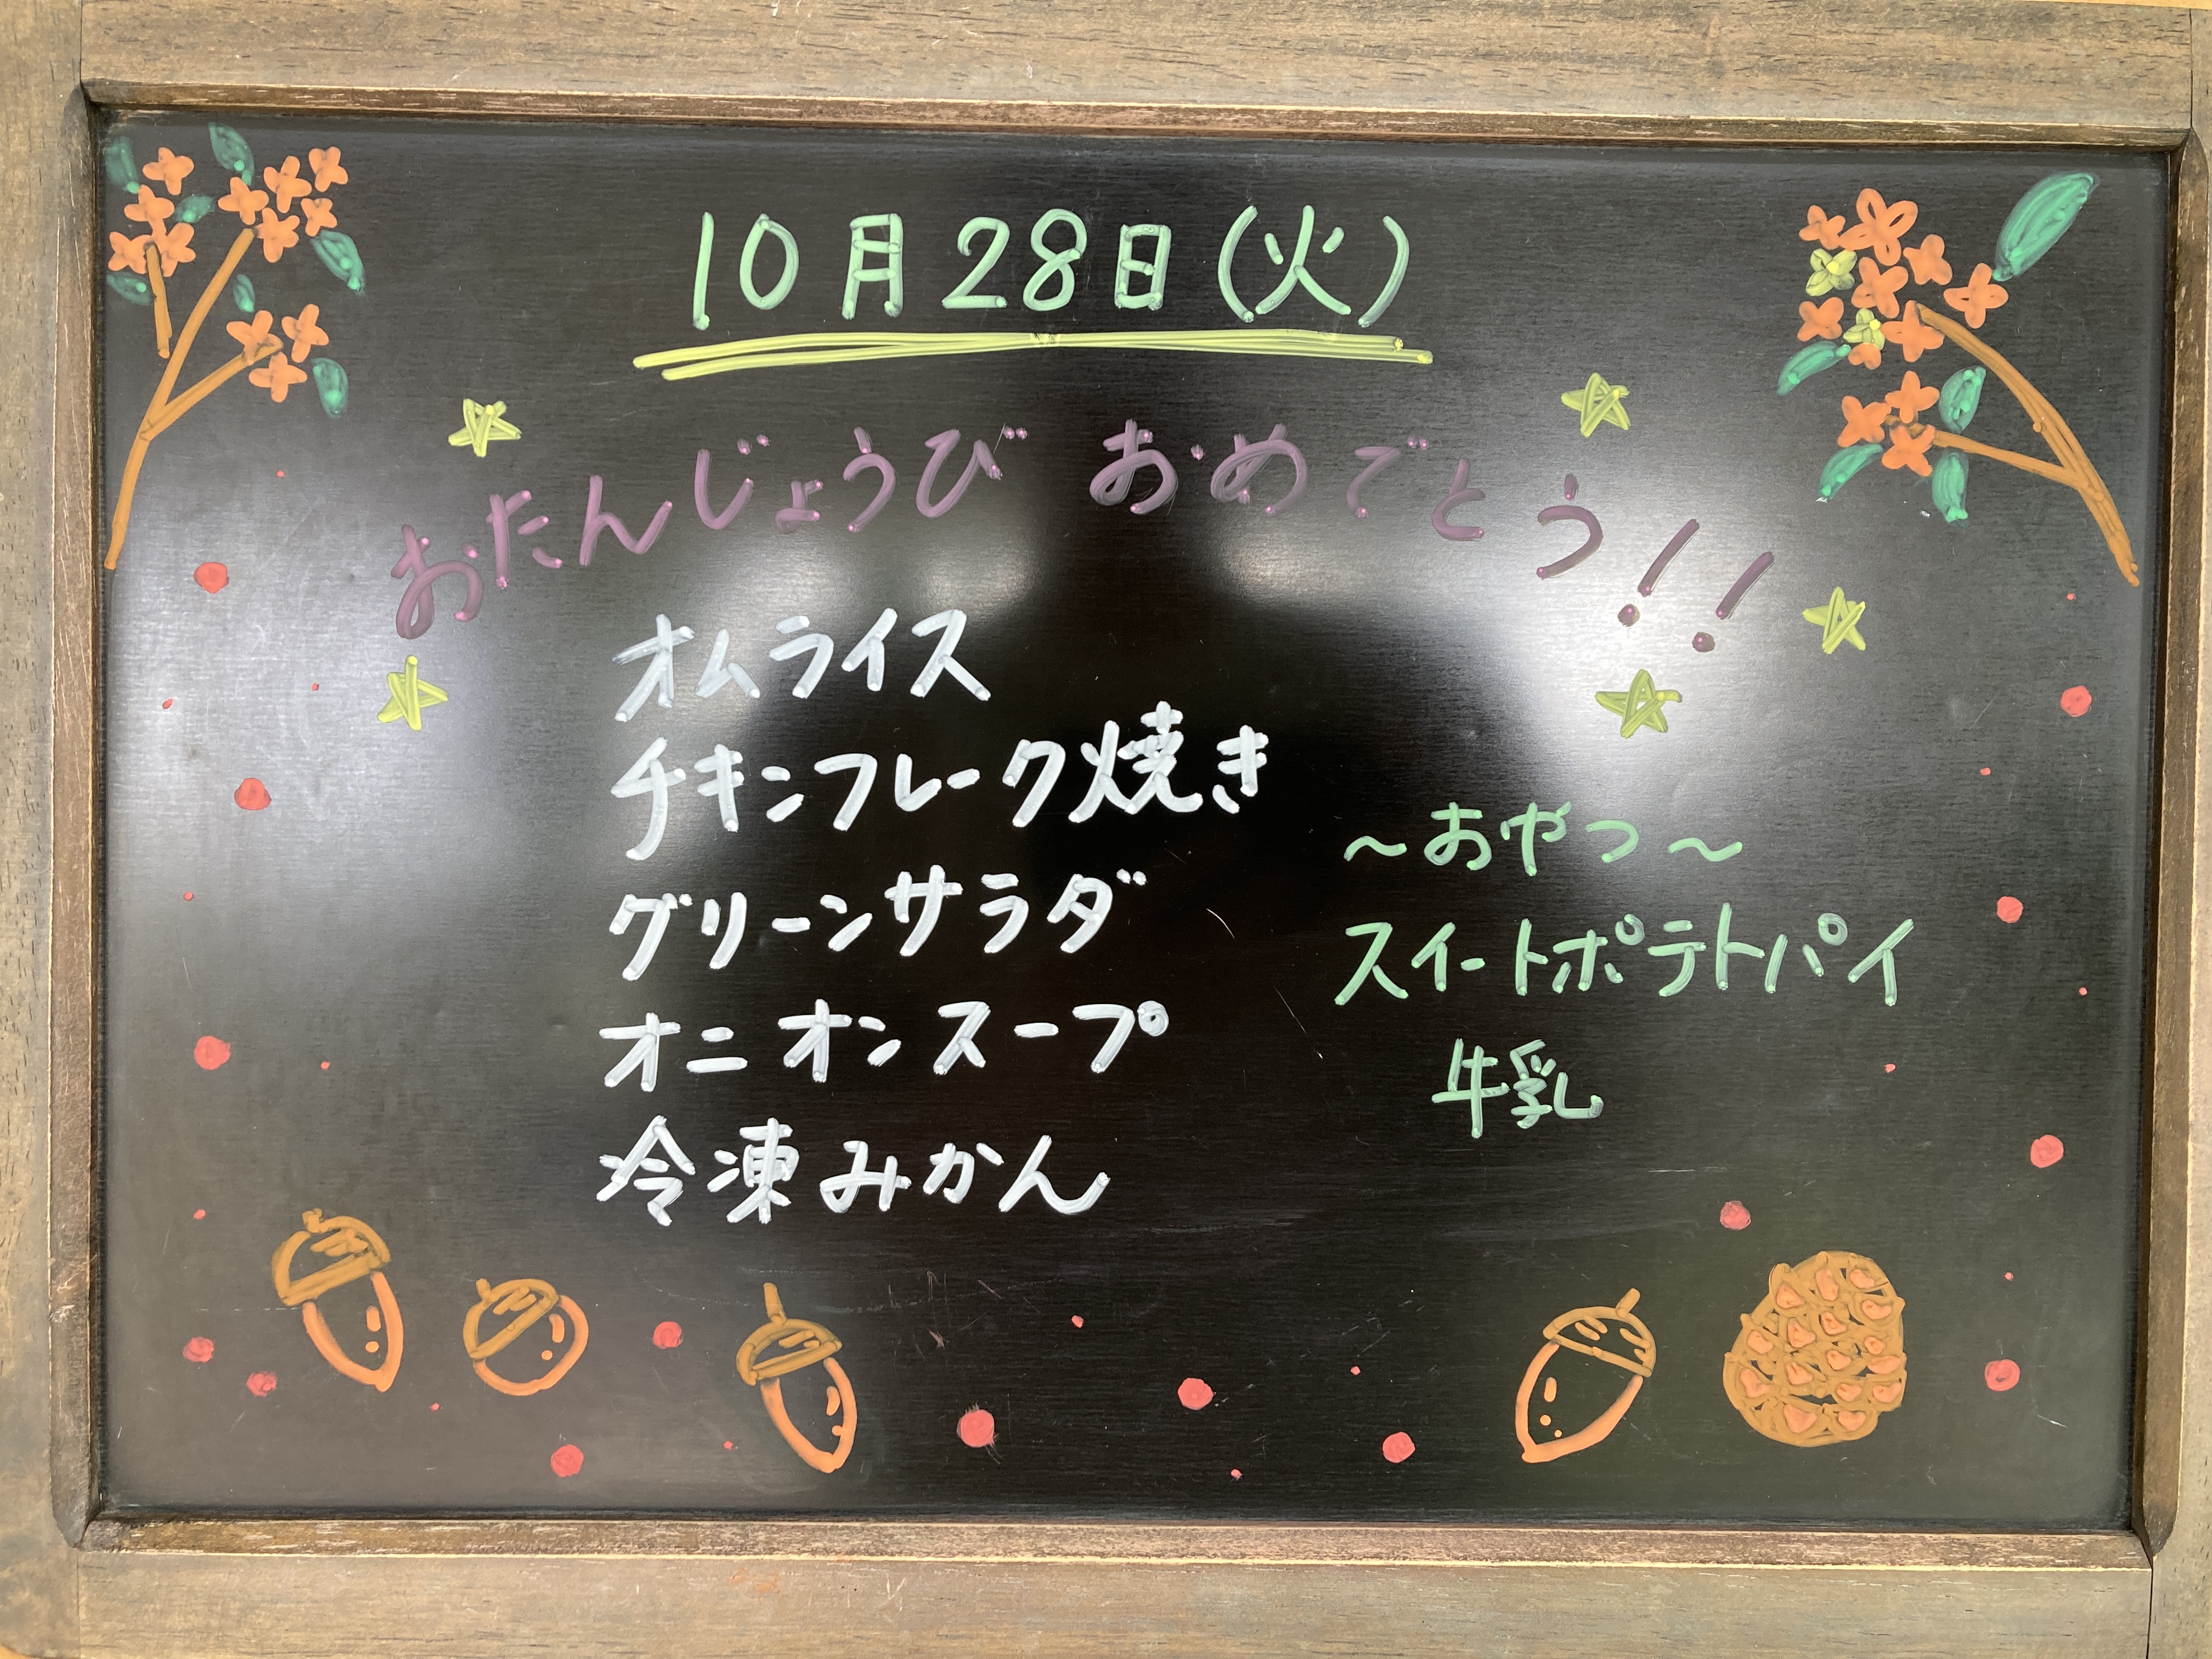 10月28日(火)
おたんじょうび おめでとう!!
オムライス
チキンフレーク焼き
グリーンサラダ
オニオンスープ
冷凍みかん
～おやつ～
スイートポテトパイ
牛乳